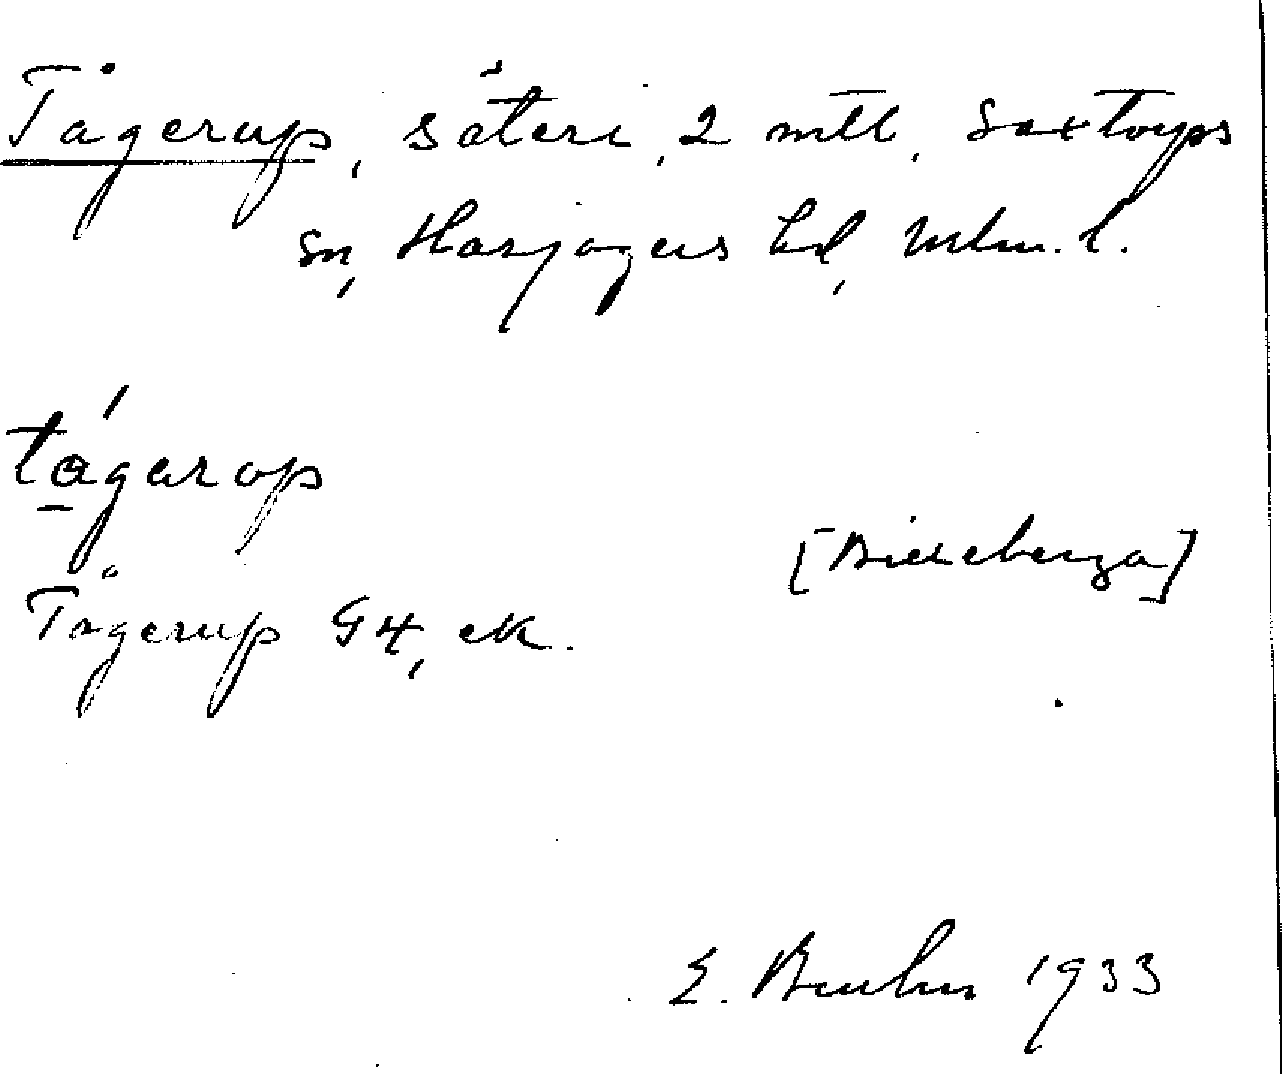 Tågerup, säteri, 2 mtl, Saxtorps
sn, Harjagers hd, Mlm. l.
tågarop
[Billeberga]
Tågerup G4, ek.
E. Bruhn 1933